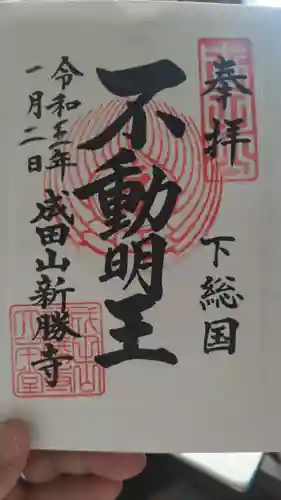 奉拝
下総国
不動明王
令和五年
一月二日
成田山新勝寺